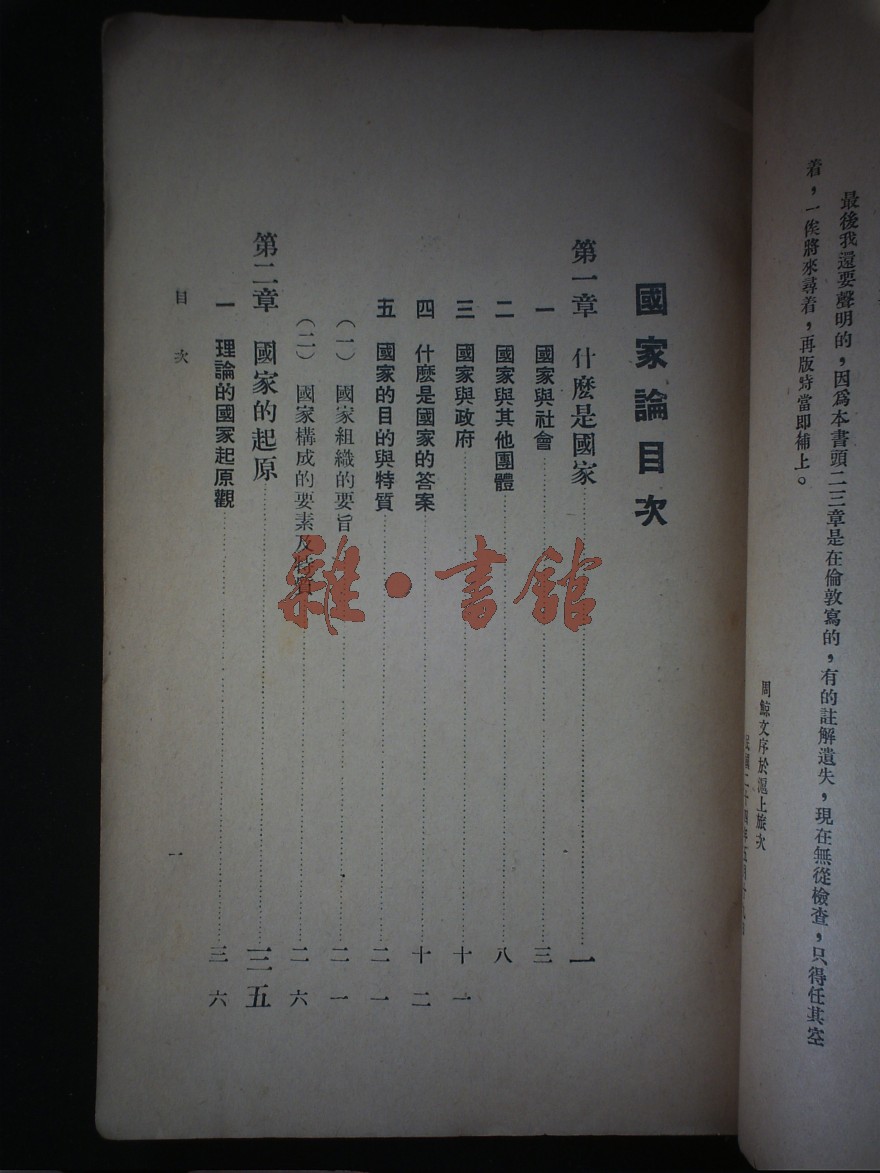 最後我還要聲明的，因爲本書頭二三章是在倫敦寫的，有的註解遺失，現在無從檢查，只得任其空
着，一俟將來尋着，再版時當卽補上。
周鯨文序於滬上旅次
國家論目次
第一章 什麽是國家 一
一 國家與社會 三
二 國家與其他團體 八
三 國家與政府 十一
四 什麽是國家的答案 十二
五 國家的目的與特質 二一
（一） 國家組織的要旨 二一
（二） 國家構成的要素及特質 二六
第二章 國家的起原 三五
一 理論的國家起原觀 三六
目次 一
雜·書館